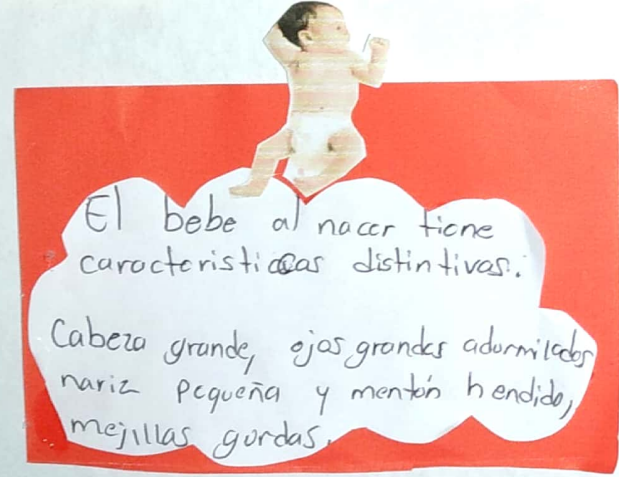 El bebe al nacer tiene
caracteristicas distintivas.
Cabeza grande, ojos grandes adormilados
nariz pequeña y mentón hendido,
mejillas gordas.